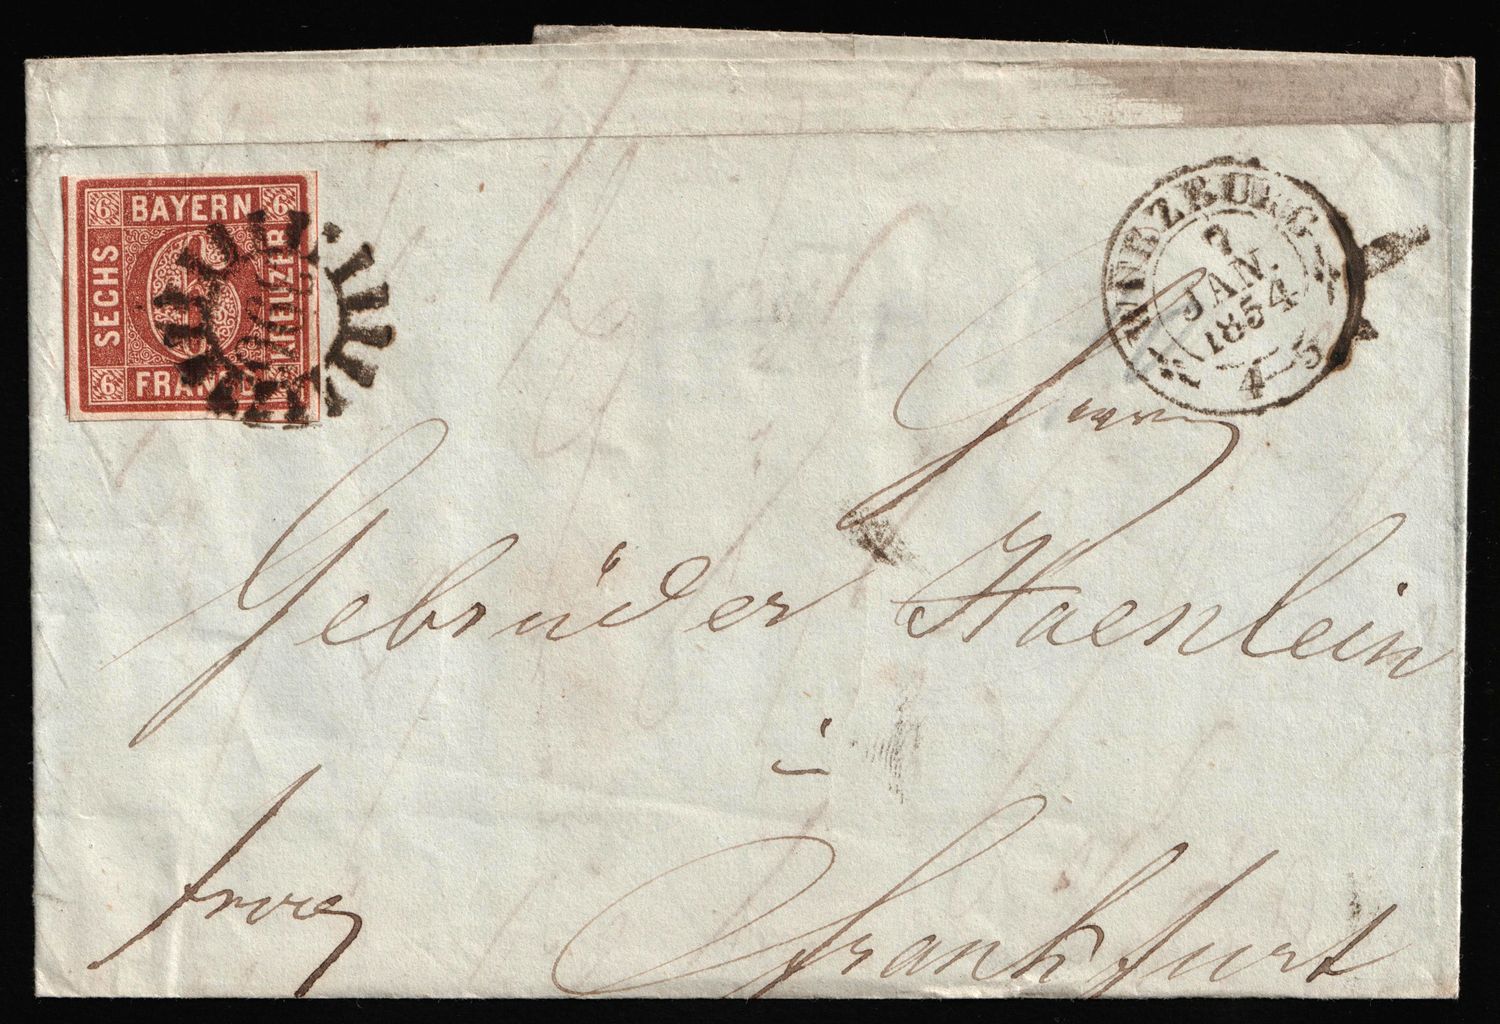 6 BAYERN 6
SECHS
KREUZER
6 FRANCO
WÜRZBURG
JAN.
1854
4-5
Herren
Gebrüder Haenlein
in
Frankfurt
franco